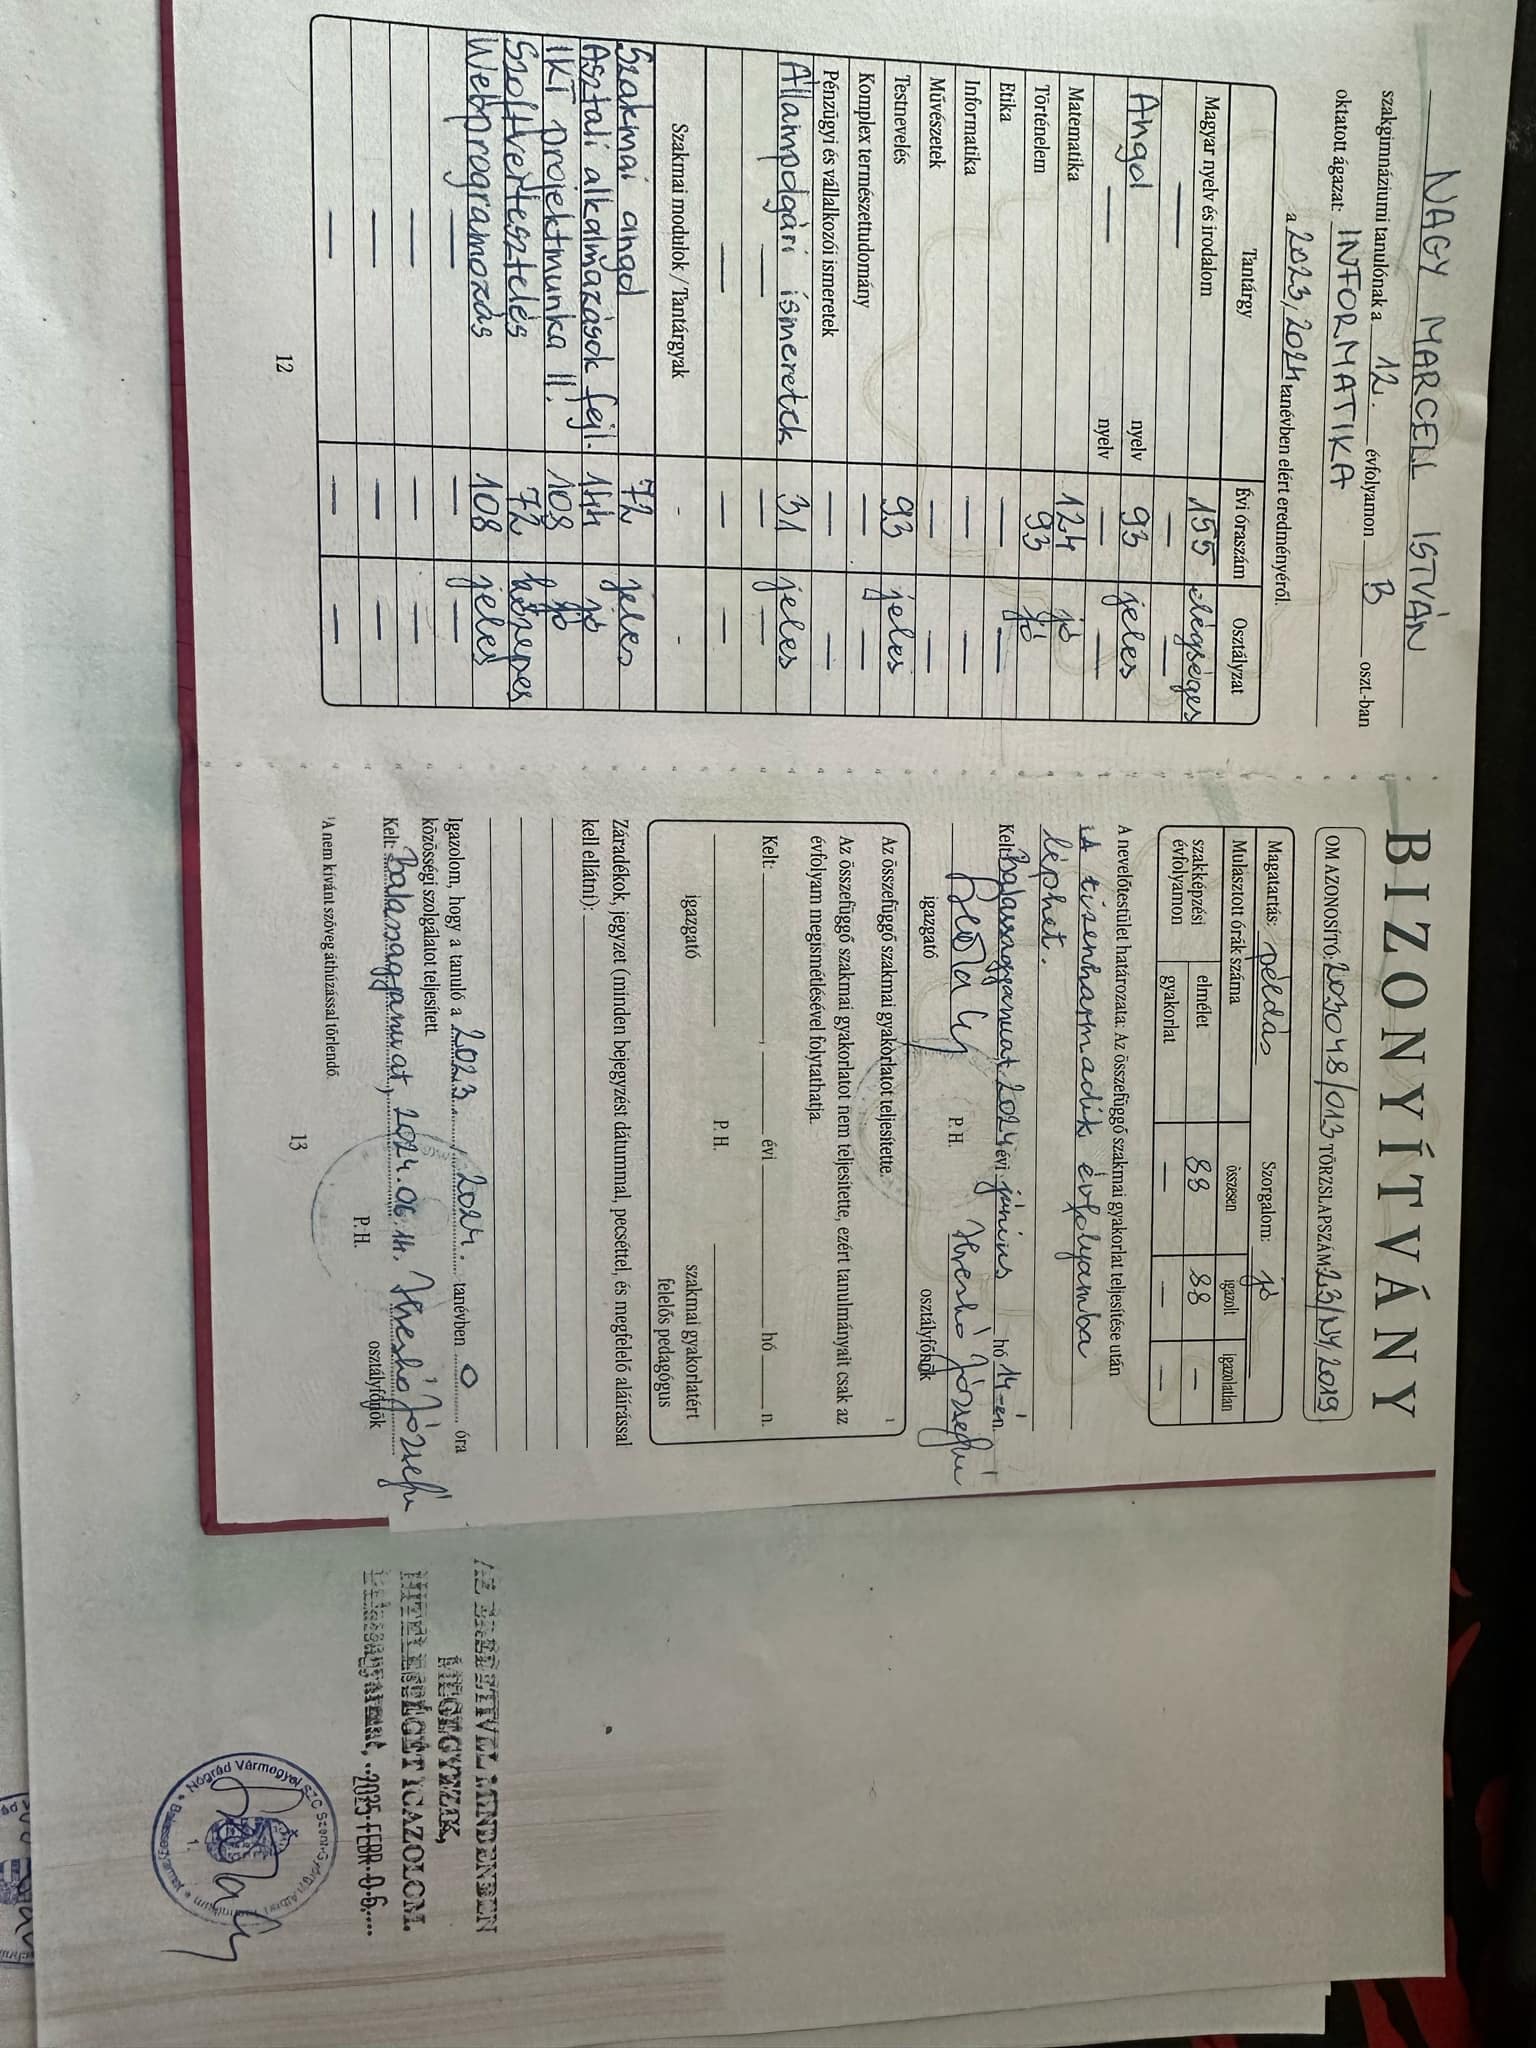 NAGY MARCELL ISTVÁN
szakgimnáziumi tanulónak a 12. évfolyamon B oszt.-ban
oktatott ágazat: INFORMATIKA
a 2023/2024 tanévben elért eredményéről.
Tantárgy Évi óraszám Osztályzat
Magyar nyelv és irodalom 155 elégséges
— — —
Angol nyelv 93 jeles
— nyelv — —
Matematika 124 jó
Történelem 93 jó
Etika — —
Informatika — —
Művészetek — —
Testnevelés 93 jeles
Komplex természettudomány — —
Pénzügyi és vállalkozói ismeretek — —
Állampolgári ismeretek 31 jeles
— — —
— — —
Szakmai modulok / Tantárgyak - -
Szakmai angol 72 jeles
Asztali alkalmazások fejl. 144 jó
IKT projektmunka II. 108 jó
Szoftvertesztelés 72 közepes
Webprogramozás 108 jeles
— — —
— — —
— — —
— — —
12
BIZONYÍTVÁNY
OM AZONOSÍTÓ: 203048/013 TÖRZSLAPSZÁM: 23/NY/2019
Magatartás: példás Szorgalom: jó
Mulasztott órák száma összesen igazolt igazolatlan
szakképzési évfolyamon elmélet 88 88 —
gyakorlat — — —
A nevelőtestület határozata: Az összefüggő szakmai gyakorlat teljesítése után
a tizenharmadik évfolyamba
léphet.
Kelt: Balassagyarmat, 2024 évi június hó 14-én.
igazgató P. H. osztályfőnök
Az összefüggő szakmai gyakorlatot teljesítette.
Az összefüggő szakmai gyakorlatot nem teljesítette, ezért tanulmányait csak az ¹
évfolyam megismétlésével folytathatja.
Kelt: , évi hó n.
igazgató P. H. szakmai gyakorlatért
felelős pedagógus
Záradékok, jegyzet (minden bejegyzést dátummal, pecséttel, és megfelelő aláírással
kell ellátni):
Igazolom, hogy a tanuló a 2023 / 2024. tanévben 0 óra
közösségi szolgálatot teljesített.
Kelt: Balassagyarmat, 2024.06.14.
P. H. osztályfőnök
¹A nem kívánt szöveg áthúzással törlendő.
13
AZ EREDETIVEL MINDENBEN
MEGEGYEZIK,
HITELESSÉGÉT IGAZOLOM.
Balassagyarmat, 2025 FEBR 06.
Nógrád Vármegyei SZC Szent-Györgyi Albert Technikum
Balassagyarmat
1.